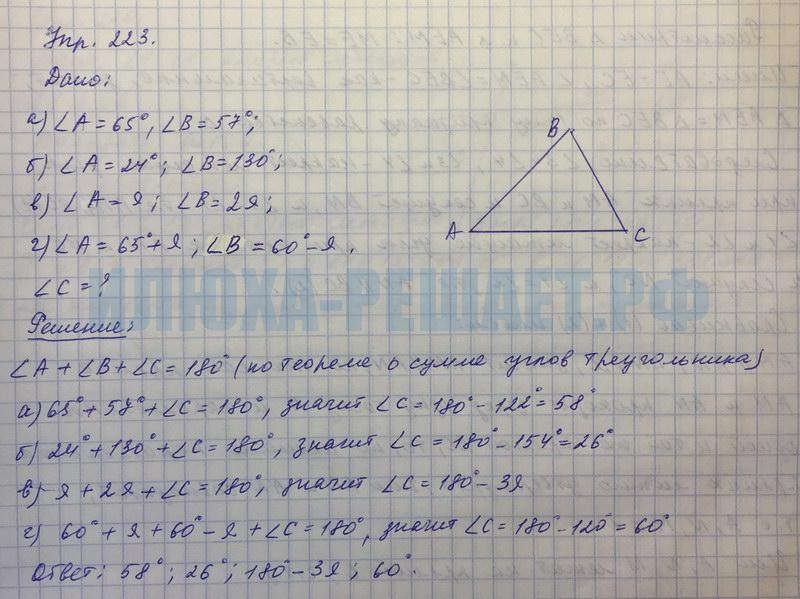 Упр. 223.
Дано:
а) ∠A = 65°, ∠B = 57°;
б) ∠A = 24°; ∠B = 130°;
в) ∠A = α; ∠B = 2α;
г) ∠A = 65° + α; ∠B = 60° - α.
∠C = ?
B
A
C
ИЛЮХА-РЕШАЕТ.РФ
Решение:
∠A + ∠B + ∠C = 180° (по теореме о сумме углов треугольника)
а) 65° + 57° + ∠C = 180°, значит ∠C = 180° - 122° = 58°
б) 24° + 130° + ∠C = 180°, значит ∠C = 180° - 154° = 26°
в) α + 2α + ∠C = 180°, значит ∠C = 180° - 3α
г) 60° + α + 60° - α + ∠C = 180°, значит ∠C = 180° - 120° = 60°
Ответ: 58°; 26°; 180° - 3α; 60°.